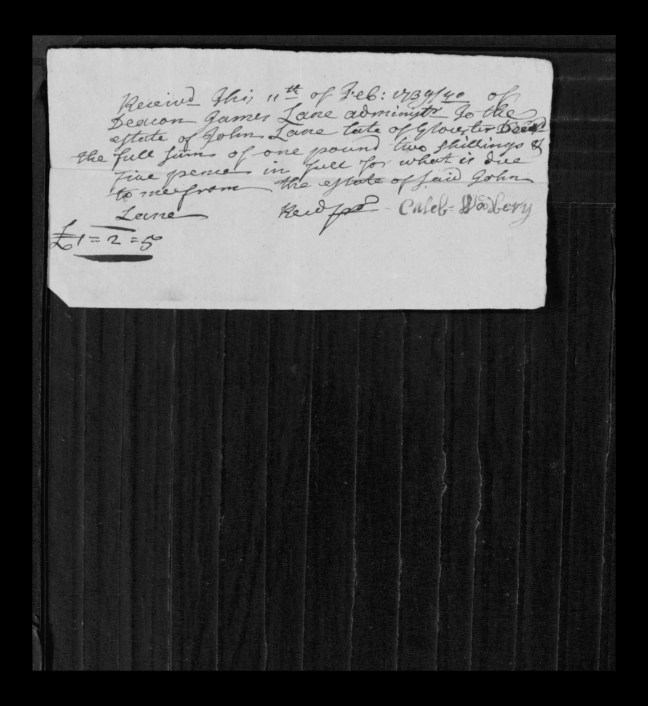 Receivd This 11th of Feb: 1739/40 of
Deacon James Lane adminstr To the
estate of John Lane late of Glouester Decd
the full sum of one pound two shillings &
five pence in full for what is due
to me from the estate of said John
Lane Recd pr Caleb Wooberry
£1=2=5